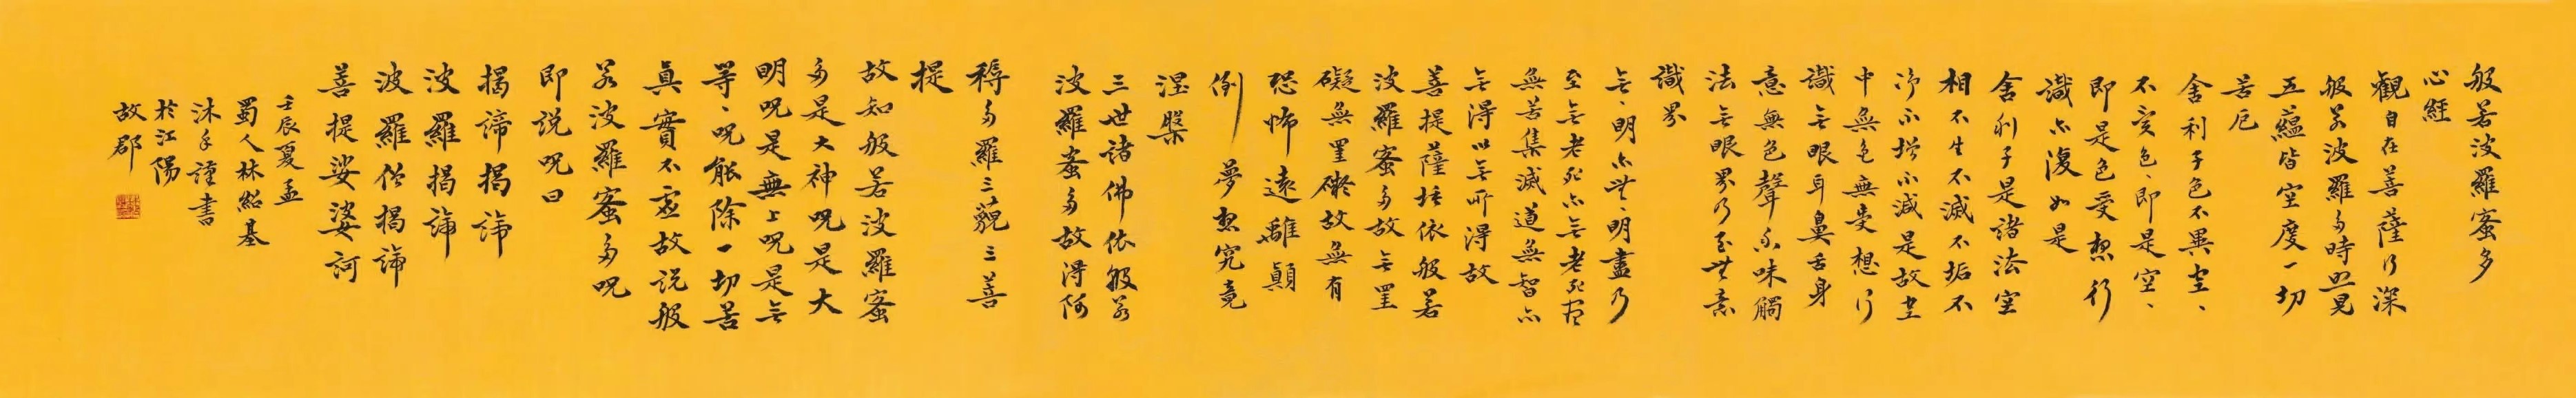 般若波羅蜜多
心經
觀自在菩薩行深
般若波羅多時照見
五蘊皆空度一切
苦厄
舍利子色不異空、
不異色、即是空、
即是色受想行
識亦復如是
舍利子是諸法空
相不生不滅不垢不
淨不增不減是故空
中無色無受想行
識無眼耳鼻舌身
意無色聲香味觸
法無眼界乃至無意
識界
無、明亦無、明盡乃
至無老死亦無老死盡
無苦集滅道無智亦
無得以無所得故
菩提薩埵依般若
波羅蜜多故無罣
礙無罣礙故無有
恐怖遠離顛
倒夢想究竟
涅槃
三世諸佛依般若
波羅蜜多故得阿
耨多羅三藐三菩
提
故知般若波羅蜜
多是大神呪是大
明呪是無上呪是無
等、呪能除一切苦
真實不虛故説般
若波羅蜜多呪
即説呪曰
揭諦揭諦
波羅揭諦
波羅僧揭諦
菩提娑婆訶
壬辰夏孟
蜀人林紹基
沐手謹書
於江陽
故郡